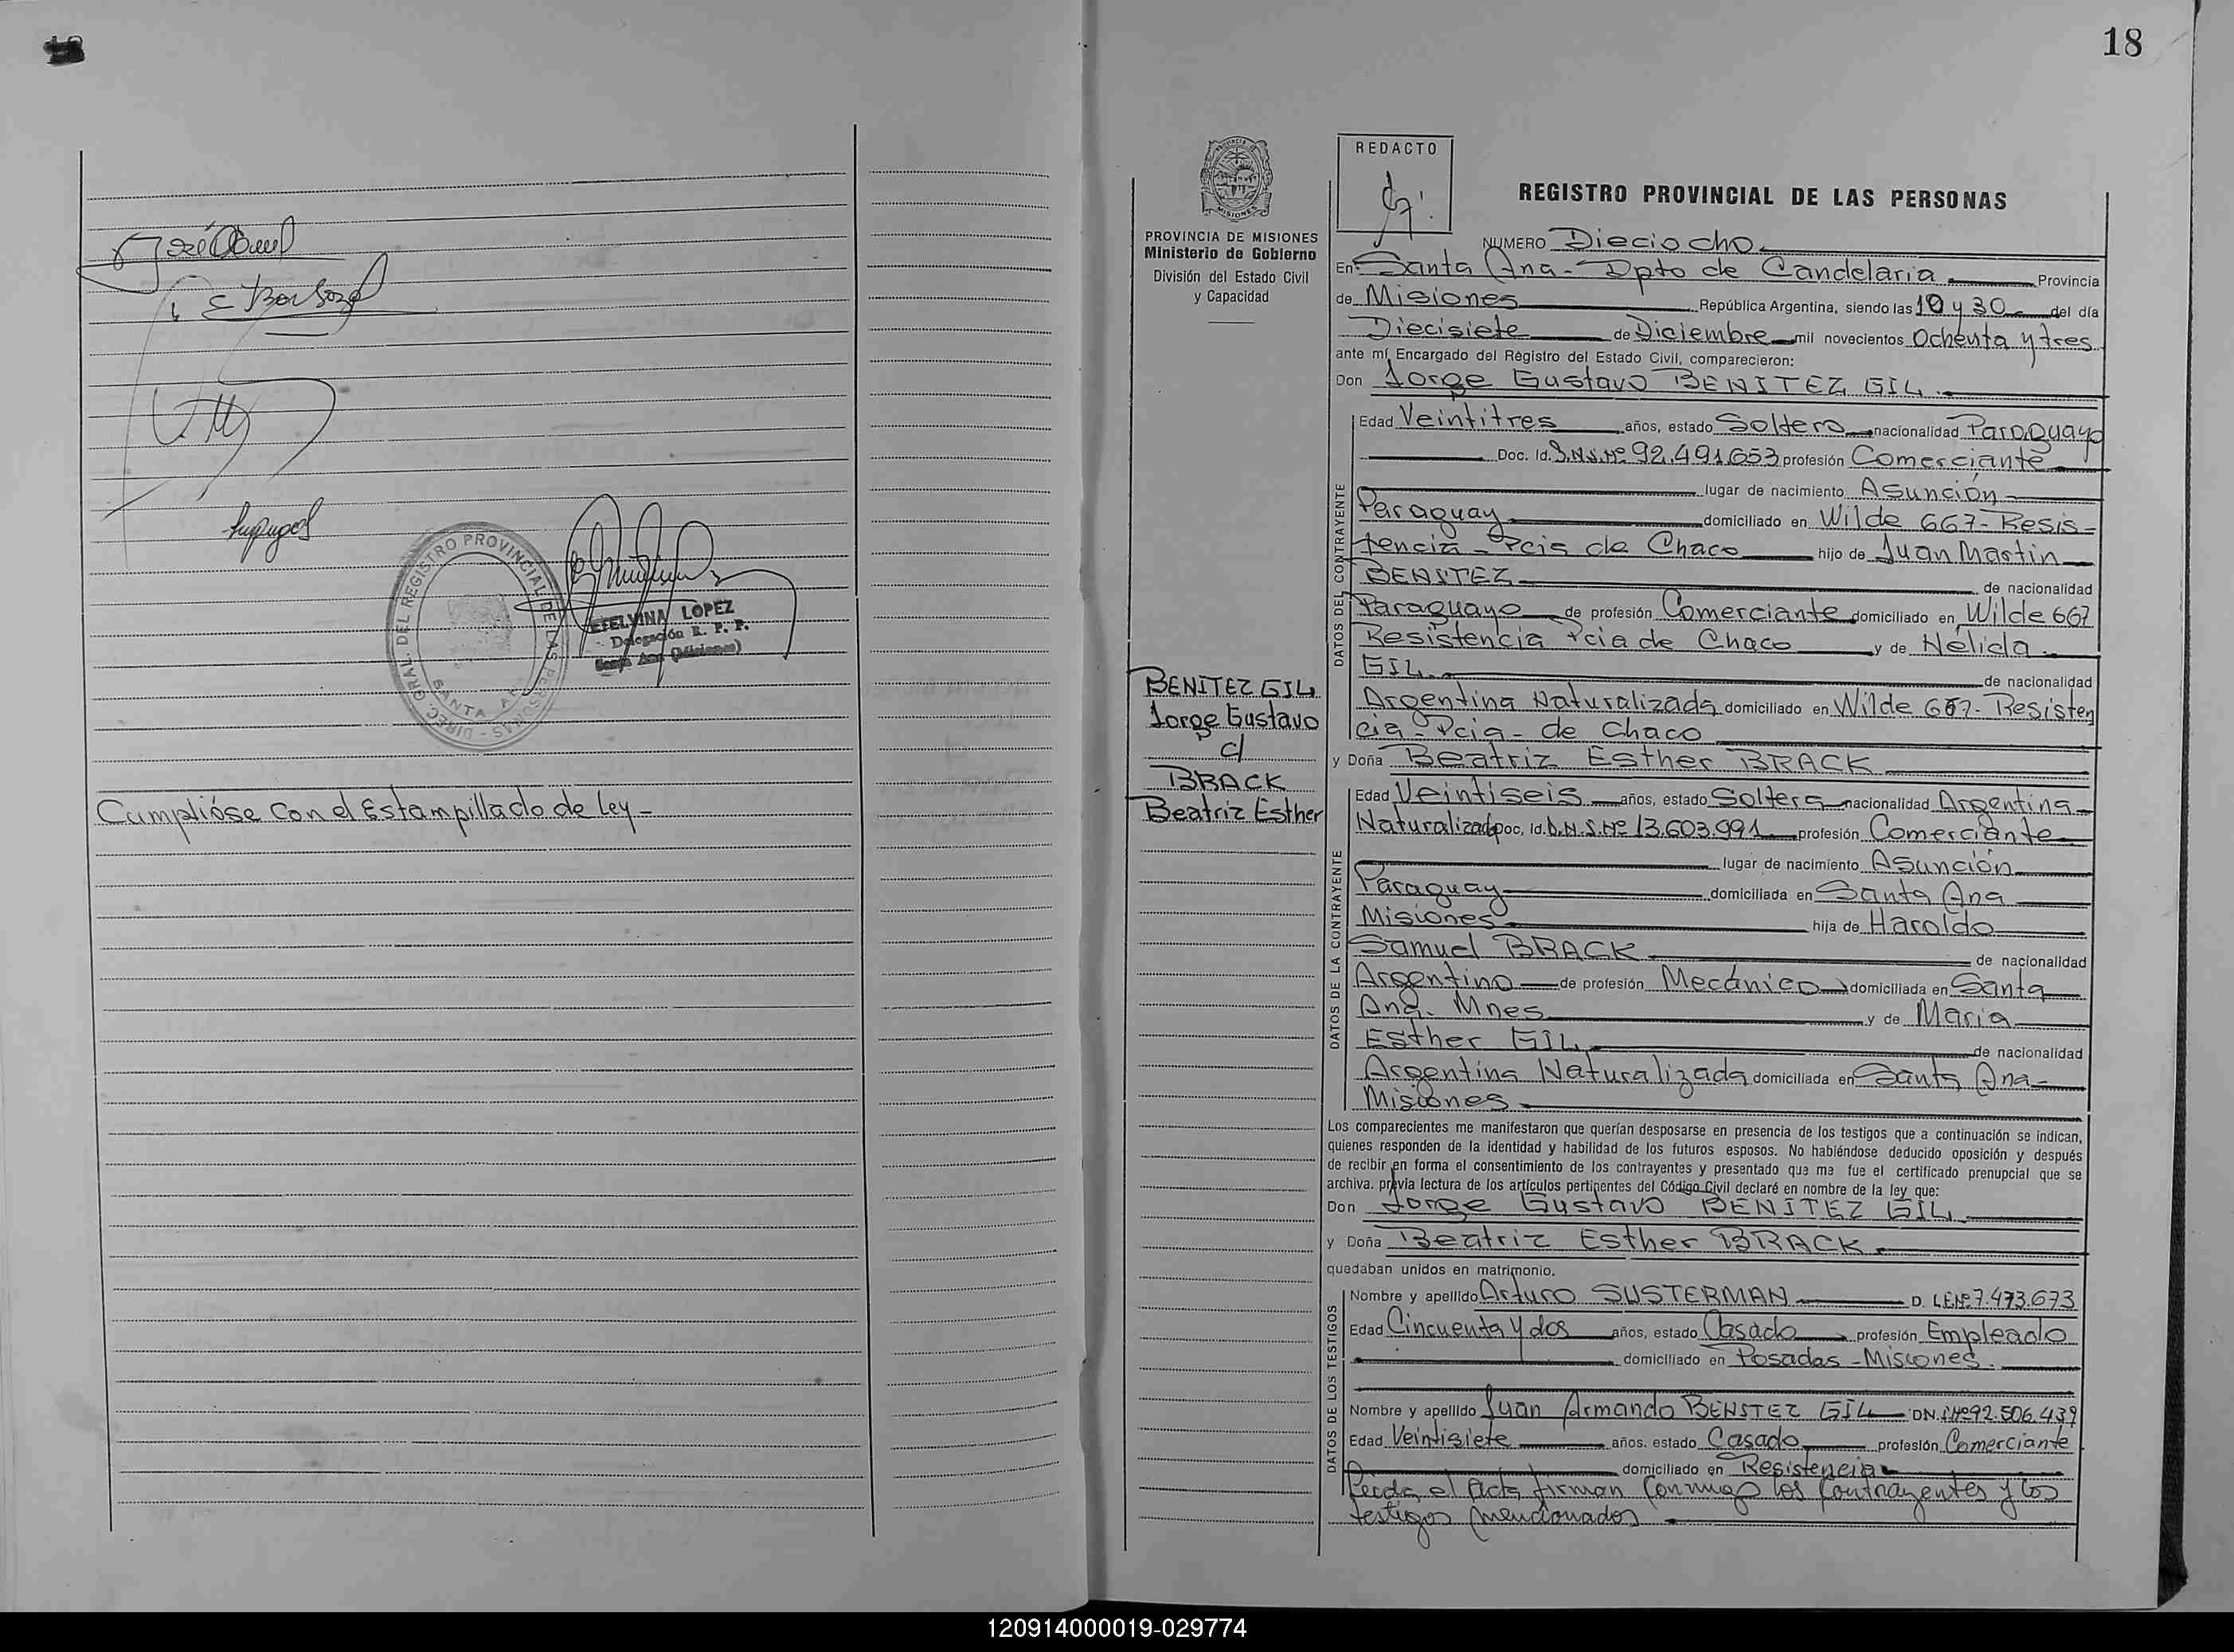 Cumplióse con el Estampillado de Ley -
DIREC. GRAL. DEL REGISTRO PROVINCIAL DE LAS PERSONAS - SANTA ANA
ETELVINA LOPEZ
Delegación R. P. P.
Santa Ana (Misiones)
18
PROVINCIA DE MISIONES
Ministerio de Gobierno
División del Estado Civil
y Capacidad
BENITEZ GIL
Jorge Gustavo
c/
BRACK
Beatriz Esther
REDACTO
REGISTRO PROVINCIAL DE LAS PERSONAS
NUMERO Dieciocho
En Santa Ana - Dpto de Candelaria Provincia
de Misiones República Argentina, siendo las 10 y 30 del día
Diecisiete de Diciembre mil novecientos Ochenta y tres
ante mí, Encargado del Registro del Estado Civil, comparecieron:
Don Jorge Gustavo BENITEZ GIL
DATOS DEL CONTRAYENTE
Edad Veintitres años, estado Soltero nacionalidad Paraguayo
Doc. Id. D.N.I. Nº 92.491.653 profesión Comerciante
lugar de nacimiento Asunción
Paraguay domiciliado en Wilde 667 - Resis-
tencia - Pcia de Chaco hijo de Juan Martin
BENITEZ de nacionalidad
Paraguayo de profesión Comerciante domiciliado en Wilde 667
Resistencia Pcia de Chaco y de Nélida
GIL de nacionalidad
Argentina Naturalizada domiciliado en Wilde 667 - Resisten
cia - Pcia - de Chaco
y Doña Beatriz Esther BRACK
DATOS DE LA CONTRAYENTE
Edad Veintiseis años, estado Soltera nacionalidad Argentina
Naturalizada Doc. Id. D.N.I. Nº 13.603.991 profesión Comerciante
lugar de nacimiento Asunción
Paraguay domiciliada en Santa Ana
Misiones hija de Haroldo
Samuel BRACK de nacionalidad
Argentino de profesión Mecánico domiciliada en Santa
Ana - Mnes y de Maria
Esther GIL de nacionalidad
Argentina Naturalizada domiciliada en Santa Ana -
Misiones
Los comparecientes me manifestaron que querían desposarse en presencia de los testigos que a continuación se indican,
quienes responden de la identidad y habilidad de los futuros esposos. No habiéndose deducido oposición y después
de recibir en forma el consentimiento de los contrayentes y presentado que me fue el certificado prenupcial que se
archiva. previa lectura de los artículos pertinentes del Código Civil declaré en nombre de la ley que:
Don Jorge Gustavo BENITEZ GIL
y Doña Beatriz Esther BRACK
quedaban unidos en matrimonio.
DATOS DE LOS TESTIGOS
Nombre y apellido Arturo SUSTERMAN D. L.E.Nº 7.473.673
Edad Cincuenta y dos años, estado Casado profesión Empleado
domiciliado en Posadas - Misiones
Nombre y apellido Juan Armando BENITEZ GIL DN.I.Nº 92.506.439
Edad Veintisiete años. estado Casado profesión Comerciante
domiciliado en Resistencia
Leida el Acta firman conmigo los contrayentes y los
testigos mencionados
120914000019-029774